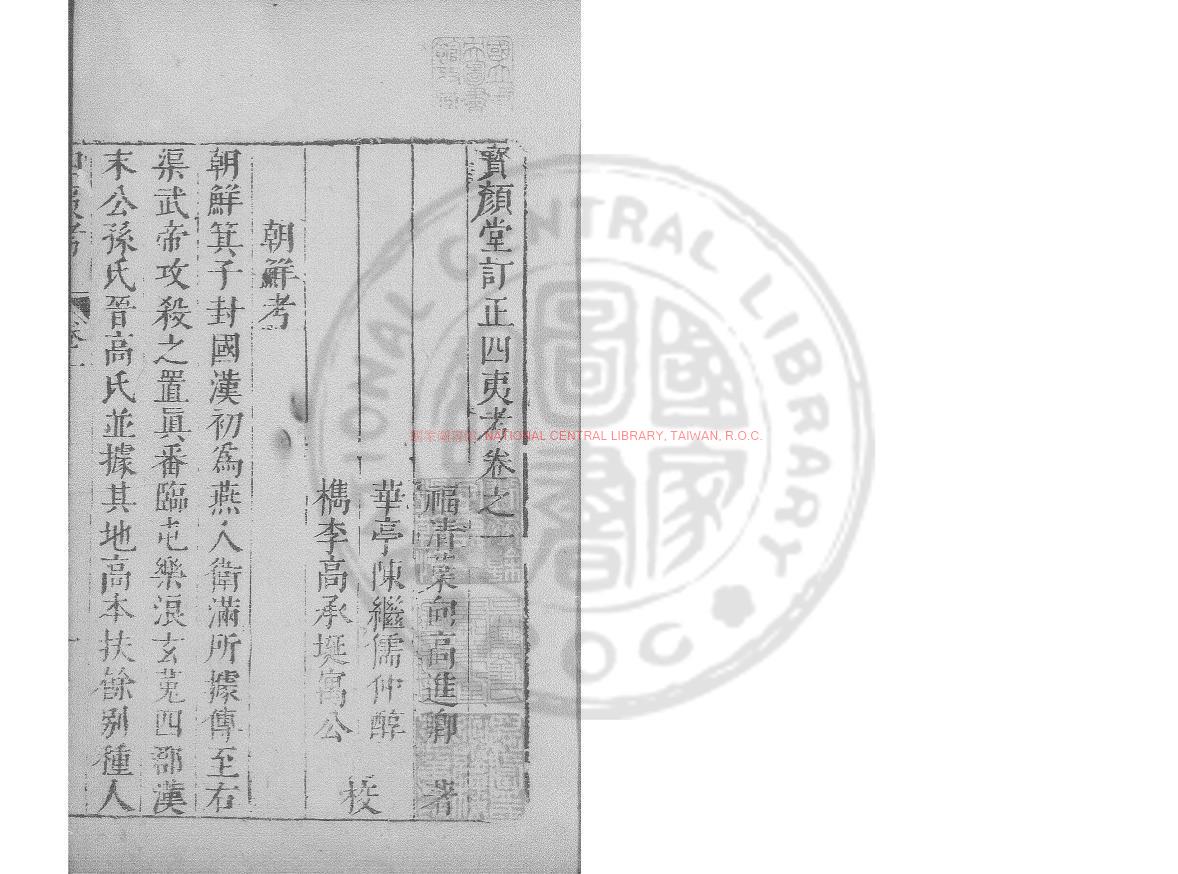 寳顏堂訂正四夷考卷之一
福清葉向高進卿 著
華亭陳繼儒仲醇
檇李高承埏寓公 校
朝鮮考
朝鮮箕子封國漢初為燕人衛滿所據傳至右
渠武帝攻殺之置眞番臨屯樂浪玄菟四郡漢
末公孫氏晉高氏並據其地高本扶餘别種人
NATIONAL CENTRAL LIBRARY, TAIWAN, R.O.C.
NATIONAL CENTRAL LIBRARY
ROC
國家圖書